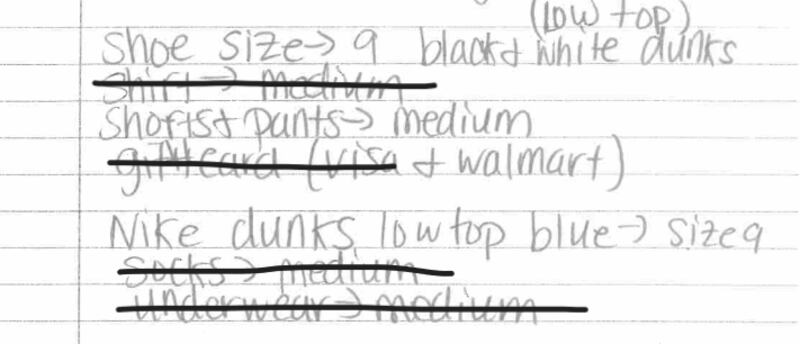 (low top)
Shoe size→ 9 black+ white dunks
shirt→ medium
Shorts+ pants→ medium
giftcard (visa + walmart)
Nike dunks low top blue→ size 9
socks→ medium
underwear→ medium